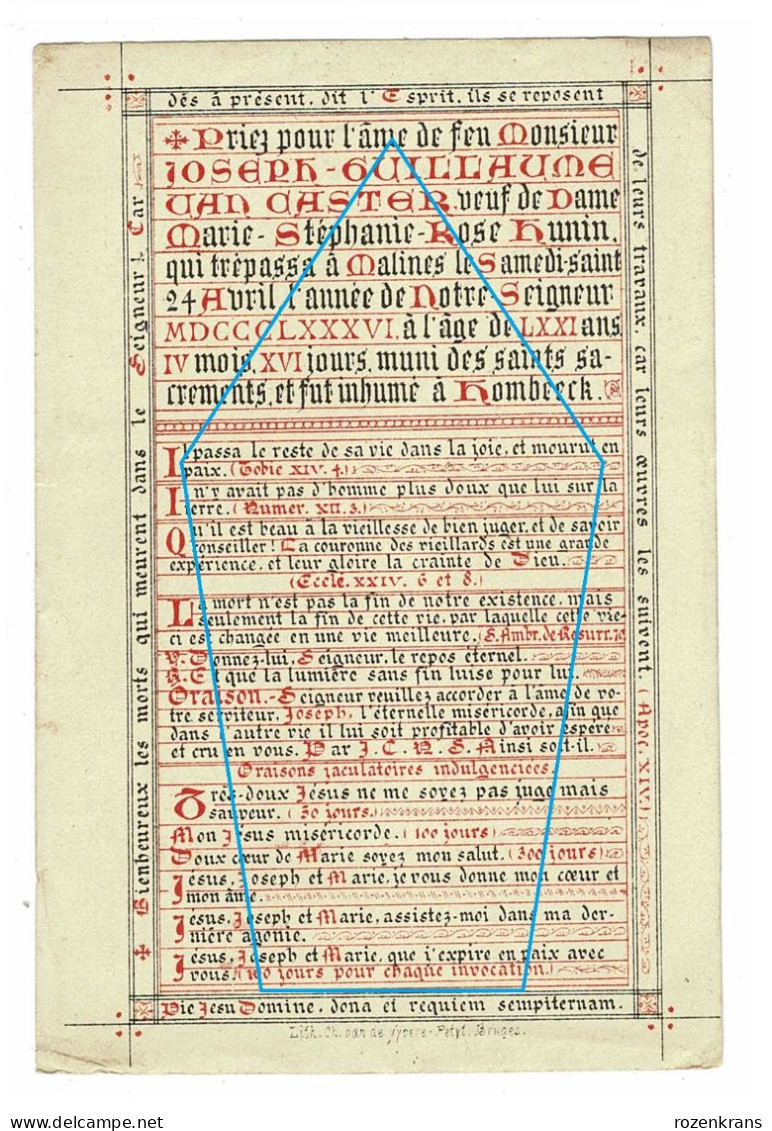 dès à présent, dit l'Esprit, ils se reposent
de leurs travaux, car leurs œuvres les suivent. (Apoc. XIV.)
Bienheureux les morts qui meurent dans le Seigneur! Car
Priez pour l'âme de feu Monsieur
JOSEPH-GUILLAUME
VAN CASTER, veuf de Dame
Marie-Stéphanie-Rose Hunin,
qui trépassa à Malines le Samedi-saint
24 Avril l'année de Notre-Seigneur
MDCCCLXXXVI, à l'âge de LXXI ans,
IV mois, XVI jours, muni des saints sa-
crements, et fut inhumé à Hombeeck.
Il passa le reste de sa vie dans la joie, et mourut en
paix. (Tobie XIV. 4.)
Il n'y avait pas d'homme plus doux que lui sur la
terre. (Numer. XII. 3.)
Qu'il est beau à la vieillesse de bien juger, et de savoir
conseiller! La couronne des vieillards est une grande
expérience, et leur gloire la crainte de Dieu.
(Eccle. XXIV. 6 et 8.)
La mort n'est pas la fin de notre existence, mais
seulement la fin de cette vie, par laquelle cette vie-
ci est changée en une vie meilleure. (S. Ambr. de Resurr.
V. Donnez-lui, Seigneur, le repos éternel.
R. Et que la lumière sans fin luise pour lui.
Oraison.-Seigneur veuillez accorder à l'âme de vo-
tre serviteur, Joseph, l'éternelle miséricorde, afin que
dans l'autre vie il lui soit profitable d'avoir espéré
et cru en vous. Par J. C. N. S. Ainsi soit-il.
Oraisons jaculatoires indulgenciées.
Très-doux Jésus ne me soyez pas juge mais
sauveur. (50 jours.)
Mon Jésus miséricorde. (100 jours)
Doux cœur de Marie soyez mon salut. (300 jours)
Jésus, Joseph et Marie, je vous donne mon cœur et
mon âme.
Jésus, Joseph et Marie, assistez-moi dans ma der-
nière agonie.
Jésus, Joseph et Marie, que j'expire en paix avec
vous. (100 jours pour chaque invocation.)
Pie Jesu Domine, dona ei requiem sempiternam.
Lith. Ch. van de Vyvere-Petyt. Bruges.
rozenkrans